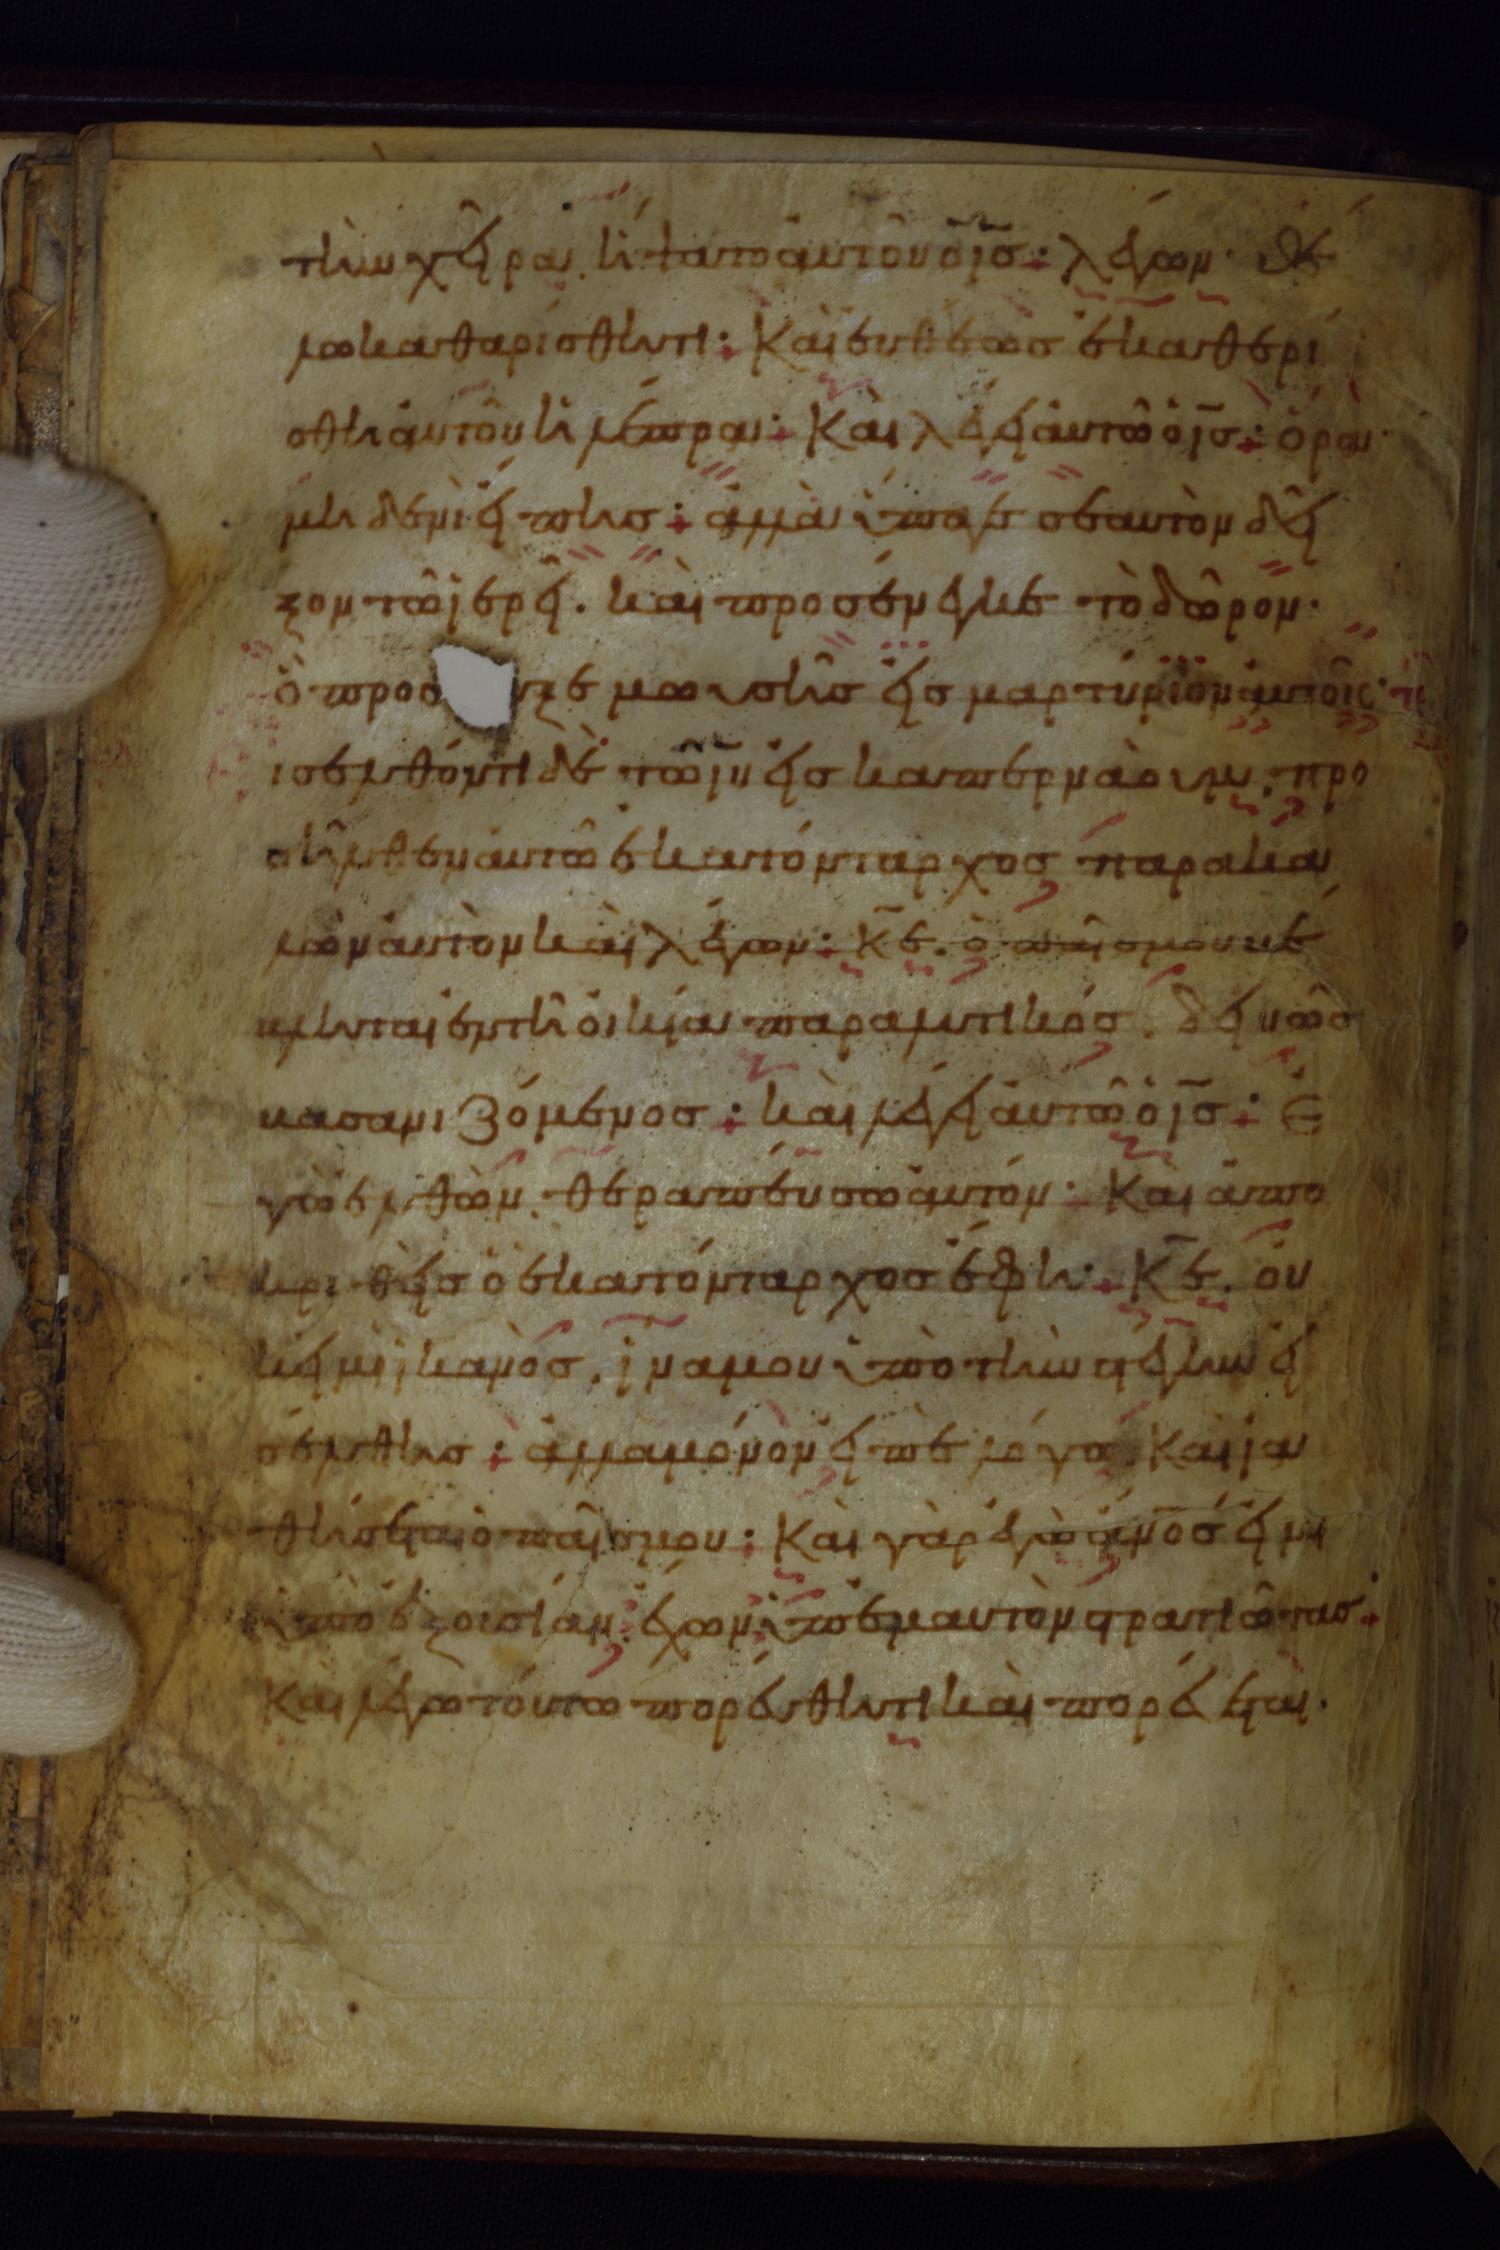 τὴν χεῖρα ἥψατο αὐτοῦ ὁ ις· λέγων· θέ
λω καθαρίσθητι· Καὶ εὐθέως ἐκαθερί
σθη αὐτοῦ ἡ λέπρα· Καὶ λέγει αὐτῶ ὁ ις· ὅρα
μηδενὶ εἴπης· ἀλλὰ ὕπαγε σεαυτὸν δεῖ
ξον τῶ ἱερεῖ. καὶ προσένεγκε τὸ δῶρον·
ὃ προσ υξε μωυσῆς εἰς μαρτύριον αὐτοῖς·
ισελθόντι δὲ τῶ ιυ εἰς καπερναούμ, προ
σῆλθεν αὐτῶ ἑκατόνταρχος παρακα
λῶν αὐτὸν καὶ λέγων· κε. ὁ παῖς μου βέ
βληται ἐν τῆ οἰκία παραλυτικός, δεινῶς
βασανιζόμενος· καὶ λέγει αὐτῶ ὁ ις· Ἐ
γὼ ἐλθὼν θεραπεύσω αὐτόν· Καὶ ἀπο
κριθεὶς ὁ ἑκατόνταρχος ἔφη· Κε. οὐ
κ εἰμὶ ἱκανὸς, ἵνα μου ὑπὸ τὴν στέγην εἰ
σέλθης· ἀλλὰ μόνον εἰπὲ λόγω Καὶ ἰα
θήσεται ὁ παῖς μου· Καὶ γὰρ ἐγὼ ανος εἰμι
ὑπὸ ἐξουσίαν, ἔχων ὑπ' ἐμαυτὸν στρατιώτας·
Καὶ λέγω τούτω πορεύθητι καὶ πορεύεται.